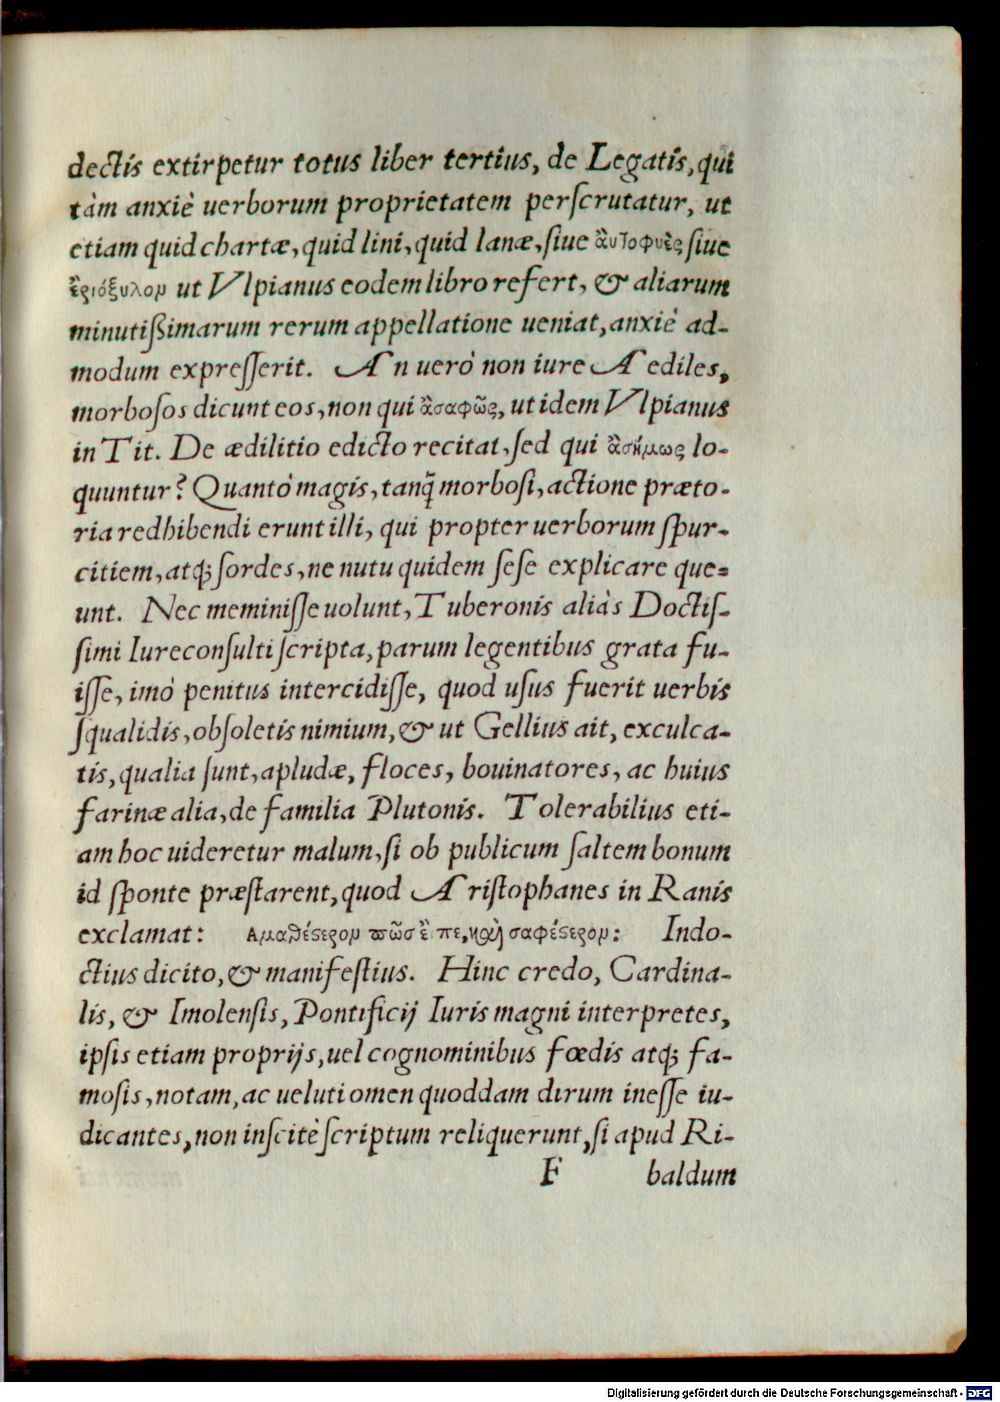 dectis extirpetur totus liber tertius, de Legatis, qui
tàm anxiè uerborum proprietatem perscrutatur, ut
etiam quid chartæ, quid lini, quid lanæ, siue ἂυτοφυὲς siue
ἒριόξυλον ut Vlpianus eodem libro refert, & aliarum
minutißimarum rerum appellatione ueniat, anxiè ad-
modum expresserit. An uerò non iure Aediles,
morbosos dicunt eos, non qui ἂσαφῶς, ut idem Vlpianus
in Tit. De ædilitio edicto recitat, sed qui ἂσήμως lo-
quuntur? Quantò magis, tanq̃ morbosi, actione præto-
ria redhibendi erunt illi, qui propter uerborum spur-
citiem, atq; sordes, ne nutu quidem sese explicare que-
unt. Nec meminisse uolunt, Tuberonis aliàs Doctis-
simi Iureconsulti scripta, parum legentibus grata fu-
isse, imò penitus intercidisse, quod usus fuerit uerbis
squalidis, obsoletis nimium, & ut Gellius ait, exculca-
tis, qualia sunt, apludæ, floces, bouinatores, ac huius
farinæ alia, de familia Plutonis. Tolerabilius eti-
am hoc uideretur malum, si ob publicum saltem bonum
id sponte præstarent, quod Aristophanes in Ranis
exclamat: Αμαθέστερον πῶς ἒιπε, καὶ σαφέστερον: Indo-
ctius dicito, & manifestius. Hinc credo, Cardina-
lis, & Imolensis, Pontificij Iuris magni interpretes,
ipsis etiam proprijs, uel cognominibus fœdis atq; fa-
mosis, notam, ac ueluti omen quoddam dirum inesse iu-
dicantes, non inscitè scriptum reliquerunt, si apud Ri-
F baldum
Digitalisierung gefördert durch die Deutsche Forschungsgemeinschaft - DFG